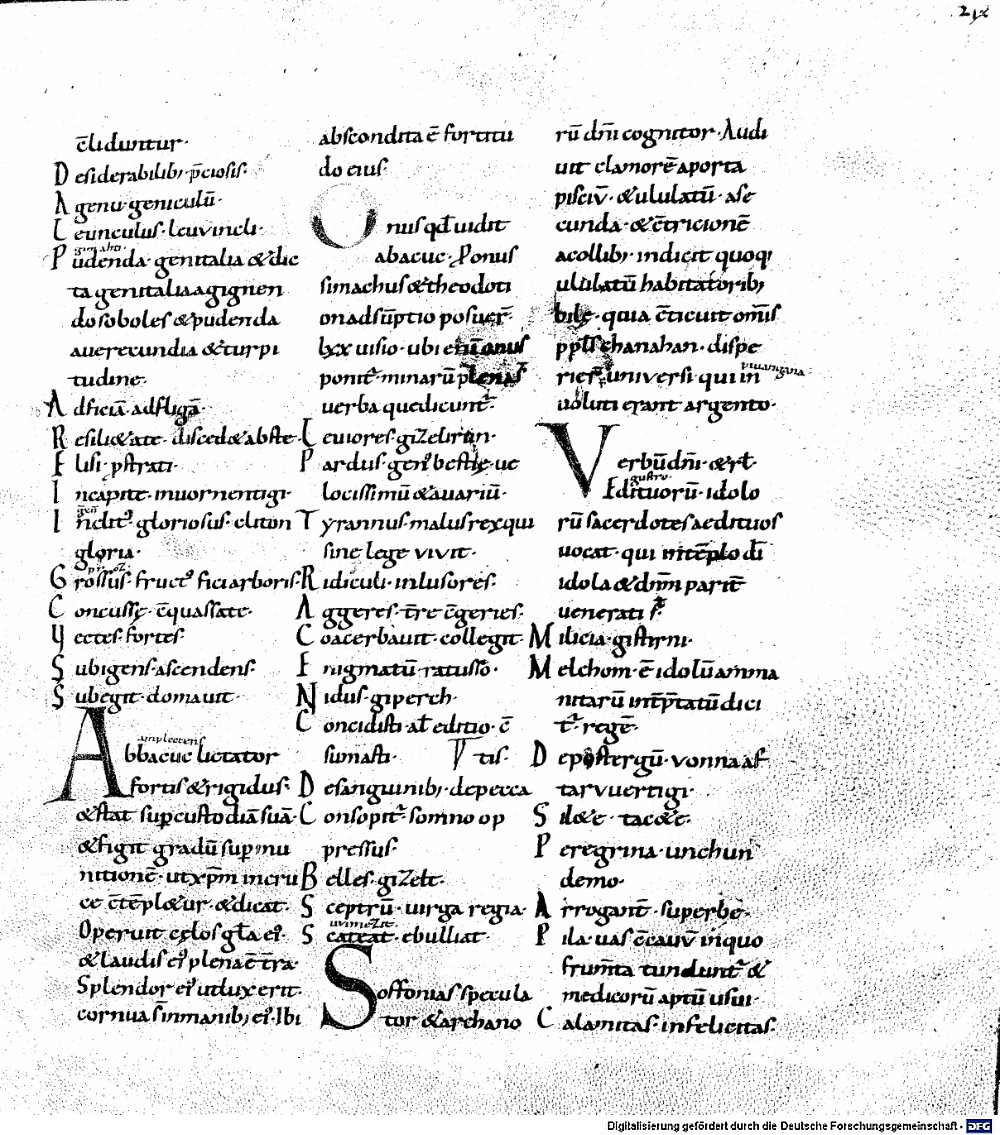 c̄liduntur·
Desiderabilib; p̄ciosis·
Agenu· geniculū·
Leunculus· leuvincli·
Pudenda· genitalia & dic
ta genitalia agignen
do soboles & pudenda
auerecundia & turpi
tudine·
Adficiā· adfligā·
Resili&ate· disced&abste·
Elisi· p̄strati·
Incapite· inuornentigi·
Inclitꝰ gloriosus· cliton
gloria·
Grossus· fructꝰ fici arboris·
Concusse· c̄quassate·
Yectes· fortes·
Subigens· ascendens·
Subegit· domauit·
amplectens
Abbacuc luctator
fortis & rigidus·
& stat sup custodiā suā·
& figit gradū sup mu
nitionē· ut xp̄m in cru
ce c̄tēpl&ur· & dicat·
Operuit cęlos gła eiꝰ·
& laudis eiꝰ plena ē t̄ra·
Splendor eiꝰ ut lux erit·
cornua s̄ in manib; eiꝰ· Ibi
abscondita ē fortitu
do eius·
Onus qđ uidit
abacuc· Ponus
simachus & theodoti
on adsūptio posuer̄·
lxx uisio· ubi etiā onus
ponitᷣ· minarū plenaſ̄
uerba que dicuntᷣ·
Leuiores· gizeliron·
Pardus· genꝰ bestię ue
locissimū & auariū·
Tyrannus· malus rex qui
sine lege vivit·
Ridiculi· inlusores·
Aggeres· t̄re c̄geries·
Coacerbauit· collegit·
Enigmatū· ratusso·
Nidus· giperch·
Concidisti· ał editio· c̄
sumasti· Vtis·
Desanguinib; depexca
Consopitᷣ· somno op
pressus·
Belles· gizelt·
Sceptrū· uirga regia·
Scateat· ebulliat·
Soffonias specula
tor & archano
rū dn̄i cognitor· Audi
uit clamorē aporta
pisciū· & ululatū· ase
cunda· & c̄tricionē
acollib; indicit quoq;
ululatū habitatorib;
pilę· quia c̄ticuit om̄is
ppłs chanahan· dispe
universi qui in
uoluti erant argento·
Verbū dn̄i· & rł·
Edituorū· idolo
rū sacerdotes aedituos
uocat· qui intēplo
idola & dn̄m paritē
uenerati s̄·
Milicia· gistirni·
Melchom· ē idolū amma
nitarū int̄p̄tatū dici
tᷣ· regē·
Depostergū· vonna af
tarvuertigi·
Sil&e· tac&e·
Peregrina· unchun
demo·
Arrogant̄· superbę·
Pila· uas c̄cauū inquo
frum̄ta tunduntᷣ &
medicorū aptū usui·
Calamitas· infelicitas·
Digitalisierung gefördert durch die Deutsche Forschungsgemeinschaft - DFG